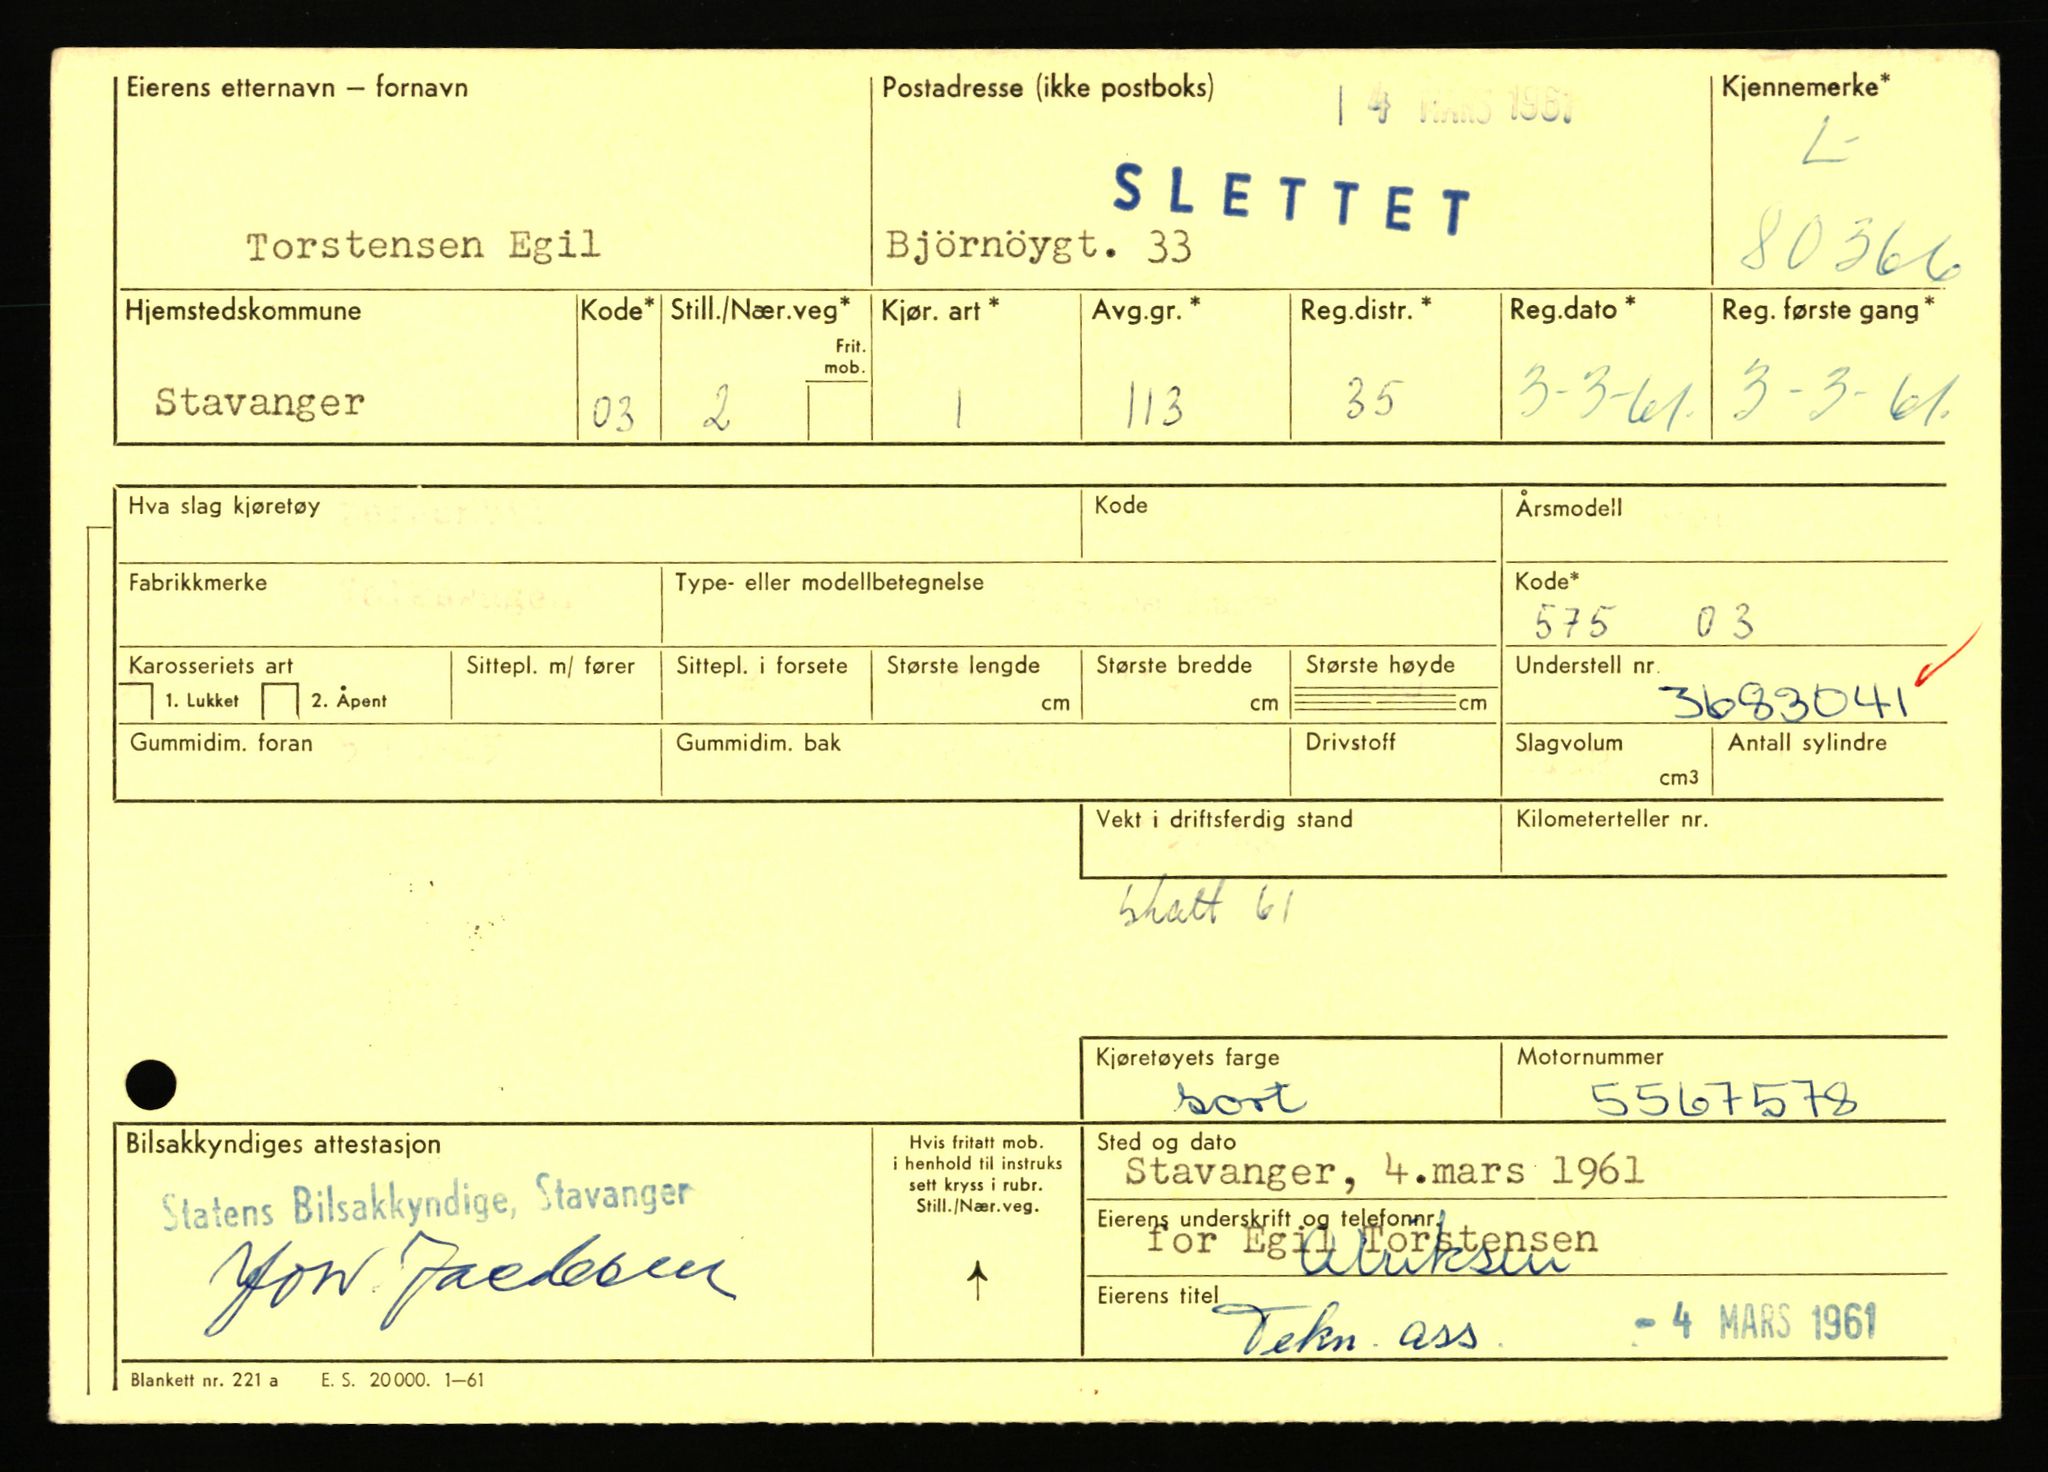 Eierens etternavn – fornavn
Postadresse (ikke postboks)
4 MARS 1961
Kjennemerke*
L-
SLETTET
Torstensen Egil
Björnöygt. 33
80366
Hjemstedskommune
Kode*
Still./Nær.veg*
Kjør. art*
Avg.gr.*
Reg.distr.*
Reg.dato*
Reg. første gang*
Frit.
mob.
Stavanger
03
2
1
113
35
3-3-61.
3-3-61.
Hva slag kjøretøy
Kode
Årsmodell
Fabrikkmerke
Type- eller modellbetegnelse
Kode*
575 03
Karosseriets art
Sittepl. m/ fører
Sittepl. i forsete
Største lengde
Største bredde
Største høyde
Understell nr.
1. Lukket
2. Åpent
cm
cm
cm
3683041
Gummidim. foran
Gummidim. bak
Drivstoff
Slagvolum
Antall sylindre
cm3
Vekt i driftsferdig stand
Kilometerteller nr.
skatt 61
Kjøretøyets farge
Motornummer
sort
5567578
Bilsakkyndiges attestasjon
Hvis fritatt mob.
i henhold til instruks
sett kryss i rubr.
Still./Nær.veg.
Sted og dato
Stavanger, 4.mars 1961
Statens Bilsakkyndige, Stavanger
Eierens underskrift og telefonnr.
for Egil Torstensen
Eierens titel
Tekn. ass.
- 4 MARS 1961
Blankett nr. 221 a E. S. 20000. 1–61